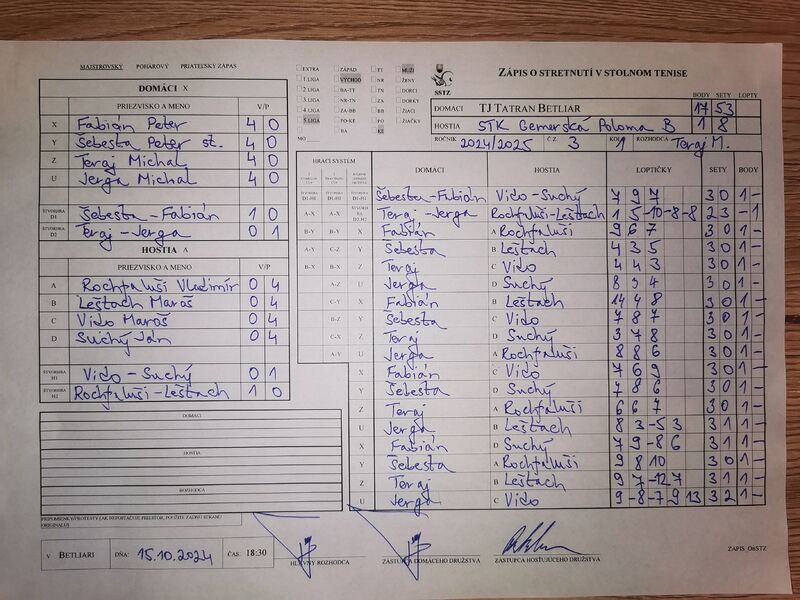 MAJSTROVSKÝ POHÁROVÝ PRIATEĽSKÝ ZÁPAS
DOMÁCI X
PRIEZVISKO A MENO V/P
X Fabián Peter 4 0
Y Šebesta Peter st. 4 0
Z Teraj Michal 4 0
U Jerga Michal 4 0
ŠTVORHRA D1 Šebesta - Fabián 1 0
ŠTVORHRA D2 Teraj - Jerga 0 1
HOSTIA A
PRIEZVISKO A MENO V/P
A Rochfaluši Vladimír 0 4
B Leštach Maroš 0 4
C Vido Maroš 0 4
D Suchý Ján 0 4
ŠTVORHRA H1 Vido - Suchý 0 1
ŠTVORHRA H2 Rochfaluši - Leštach 1 0
DOMÁCI
HOSTIA
ROZHODCA
PRIPOMIENKY/PROTESTY (AK NEPOSTAČUJE PRIESTOR, POUŽITE ZADNÚ STRANU ORIGINÁLU)
V BETLIARI DŇA: 15.10.2024 ČAS: 18:30
EXTRA ZÁPAD TT MUŽI
1.LIGA VÝCHOD NR ŽENY
2.LIGA BA-TT TN DORCI
3.LIGA NR-TN ZA DORKY
4.LIGA ZA-BB BB ŽIACI
5.LIGA PO-KE PO ŽIAČKY
BA KE
MO
SSTZ
ZÁPIS O STRETNUTÍ V STOLNOM TENISE
BODY SETY LOPTY
DOMÁCI TJ TATRAN BETLIAR 17 53
HOSTIA STK Gemerská Poloma B 1 8
ROČNÍK 2024/2025 Č.Z. 3 KOLO 1 ROZHODCA Teraj M.
HRACÍ SYSTÉM DOMÁCI HOSTIA LOPTIČKY SETY BODY
Šebesta-Fabián Vido - Suchý 7 9 7 3 0 1 -
A-X A-X Teraj - Jerga Rochfaluši-Leštach 1 5 -10 -8 -8 2 3 - 1
B-Y B-Y X Fabián A Rochfaluši 9 6 7 3 0 1 -
A-Y C-Z Y Šebesta B Leštach 4 3 5 3 0 1 -
B-X B-X Z Teraj C Vido 4 4 3 3 0 1 -
A-Z U Jerga D Suchý 8 3 4 3 0 1 -
C-Y X Fabián B Leštach 14 4 8 3 0 1 -
B-Z Y Šebesta C Vido 7 8 7 3 0 1 -
C-X Z Teraj D Suchý 3 7 8 3 0 1 -
A-Y U Jerga A Rochfaluši 8 8 6 3 0 1 -
X Fabián C Vido 7 6 9 3 0 1 -
Y Šebesta D Suchý 7 8 6 3 0 1 -
Z Teraj A Rochfaluši 6 6 7 3 0 1 -
U Jerga B Leštach 8 3 -5 3 3 1 1 -
X Fabián D Suchý 7 9 -8 6 3 1 1 -
Y Šebesta A Rochfaluši 9 8 10 3 0 1 -
Z Teraj B Leštach 9 7 -12 7 3 1 1 -
U Jerga C Vido 9 -8 -7 9 13 3 2 1 -
HLAVNÝ ROZHODCA
ZÁSTUPCA DOMÁCEHO DRUŽSTVA
ZÁSTUPCA HOSŤUJÚCEHO DRUŽSTVA
ZAPIS_OnSTZ